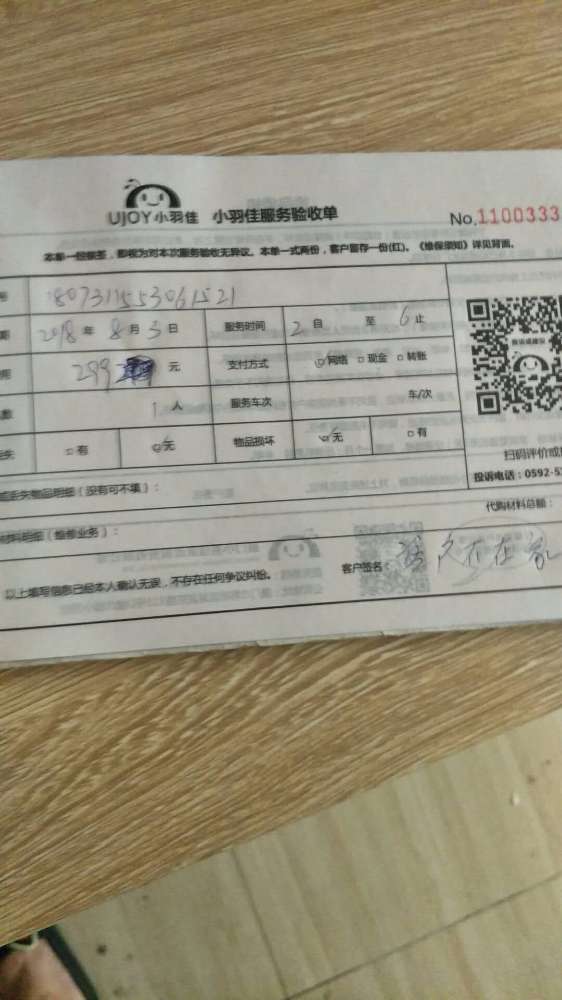 UJOY小羽佳 小羽佳服务验收单
No.1100333
本单一经签签，即视为对本次服务验收无异议。本单一式两份，客户留存一份(红)。《维保须知》详见背面。
1807311553061521
期 2018 年 8 月 3 日 服务时间 2 自 至 6 止
用 299 元 支付方式 网络 现金 转账
数 1 人 服务车次 车/次
失 有 无 物品损坏 无 有
扫码评价或
投诉电话：0592-5
或丢失物品明细（没有可不填）：
代购材料总额：
材料明细（维修业务）：
以上填写信息已经本人确认无误，不存在任何争议纠纷。
客户签名： 人不在家